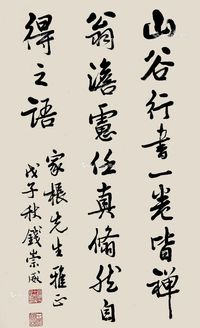 山谷行書一卷皆禪
翁澹慮任真翛然自
得之語
家振先生雅正
戊子秋錢崇威